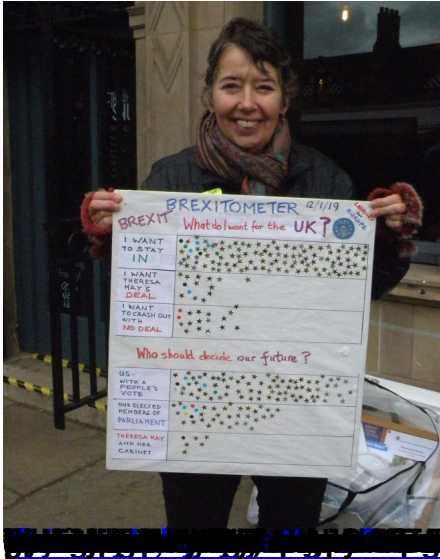 BREXITOMETER 12/1/19
BREXIT What do I want for the UK?
EUROPE
I WANT
TO STAY
IN
I WANT
THERESA
MAY'S
DEAL
I WANT
TO CRASH OUT
WITH
NO DEAL
Who should decide our future?
US
WITH A
PEOPLE'S
VOTE
OUR ELECTED
MEMBERS OF
PARLIAMENT
THERESA MAY
AND HER
CABINET